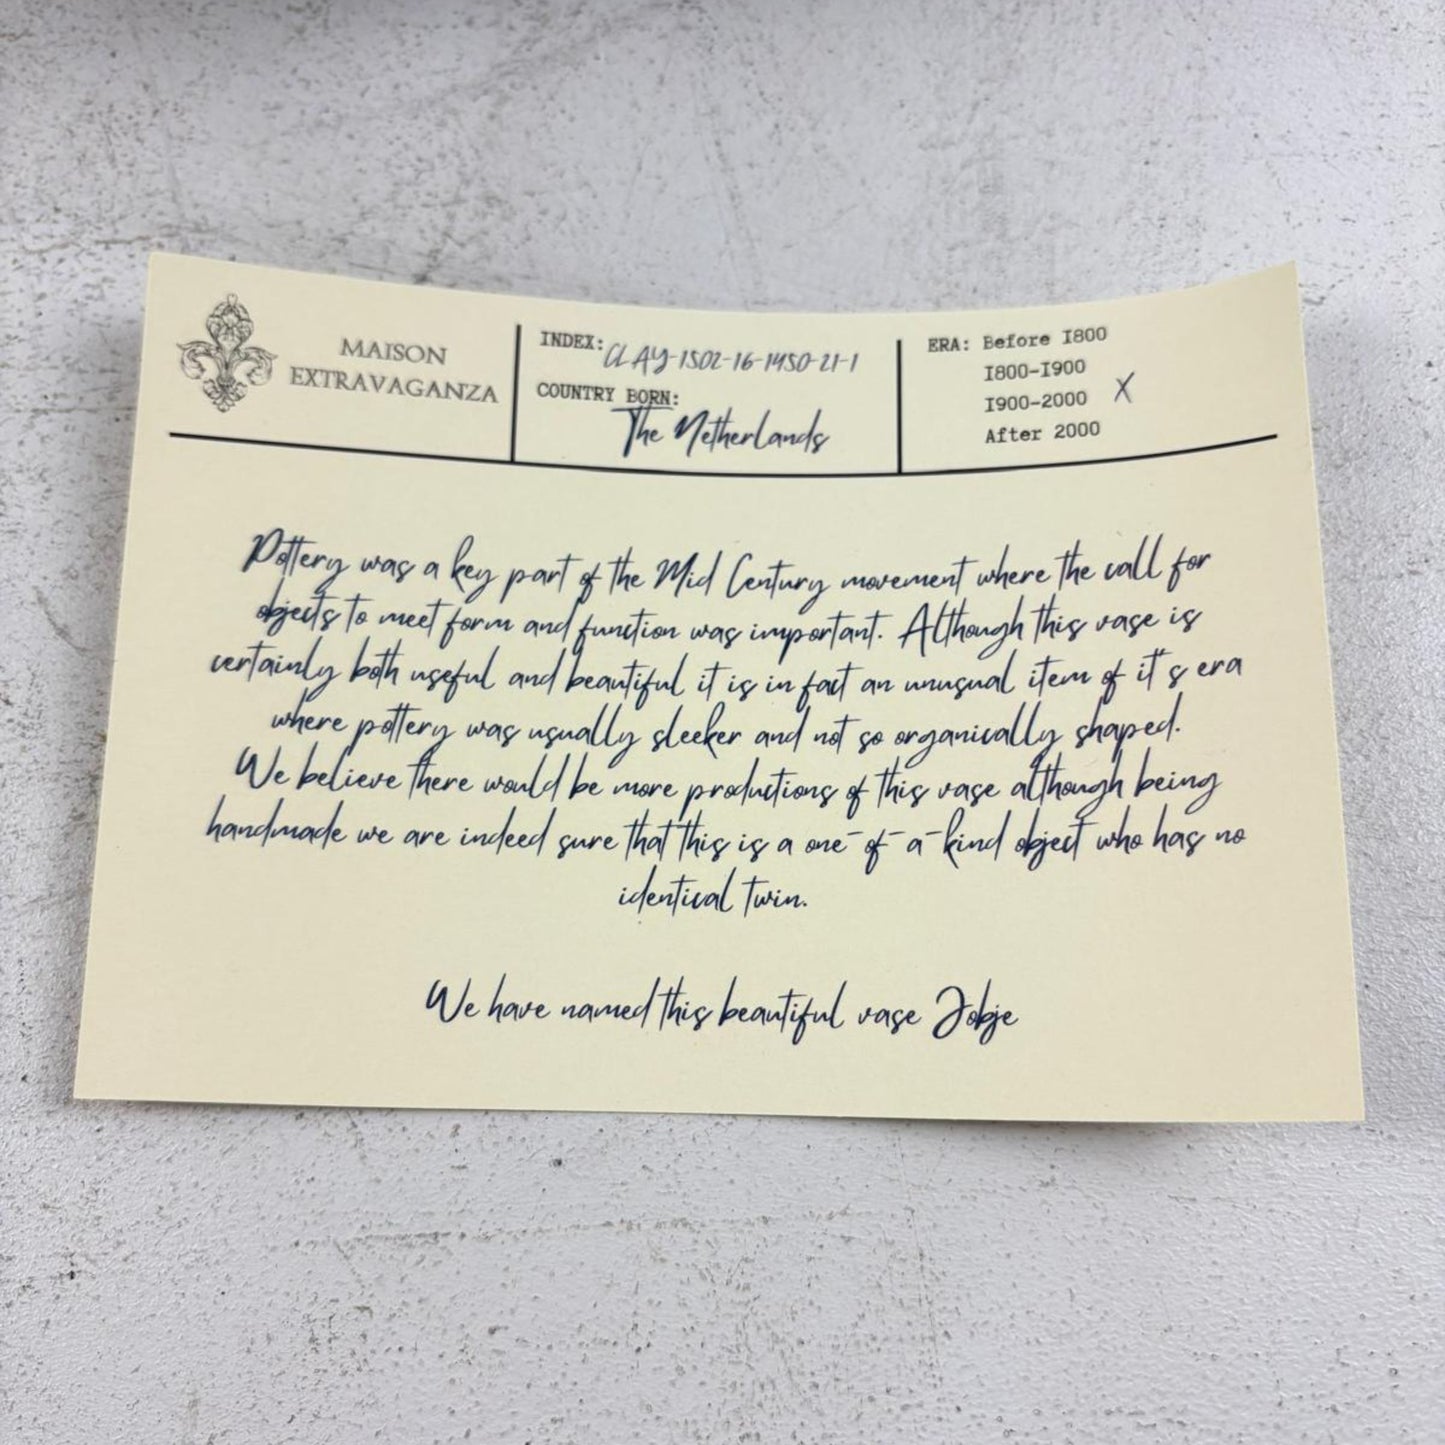 MAISON
EXTRAVAGANZA
INDEX: CLAY-1502-16-1450-21-1
COUNTRY BORN:
The Netherlands
ERA: Before I800
I800-I900
I900-2000 X
After 2000
Pottery was a key part of the Mid Century movement where the call for
objects to meet form and function was important. Although this vase is
certainly both useful and beautiful it is in fact an unusual item of it's era
where pottery was usually sleeker and not so organically shaped.
We believe there would be more productions of this vase although being
handmade we are indeed sure that this is a one-of-a-kind object who has no
identical twin.
We have named this beautiful vase Jobje